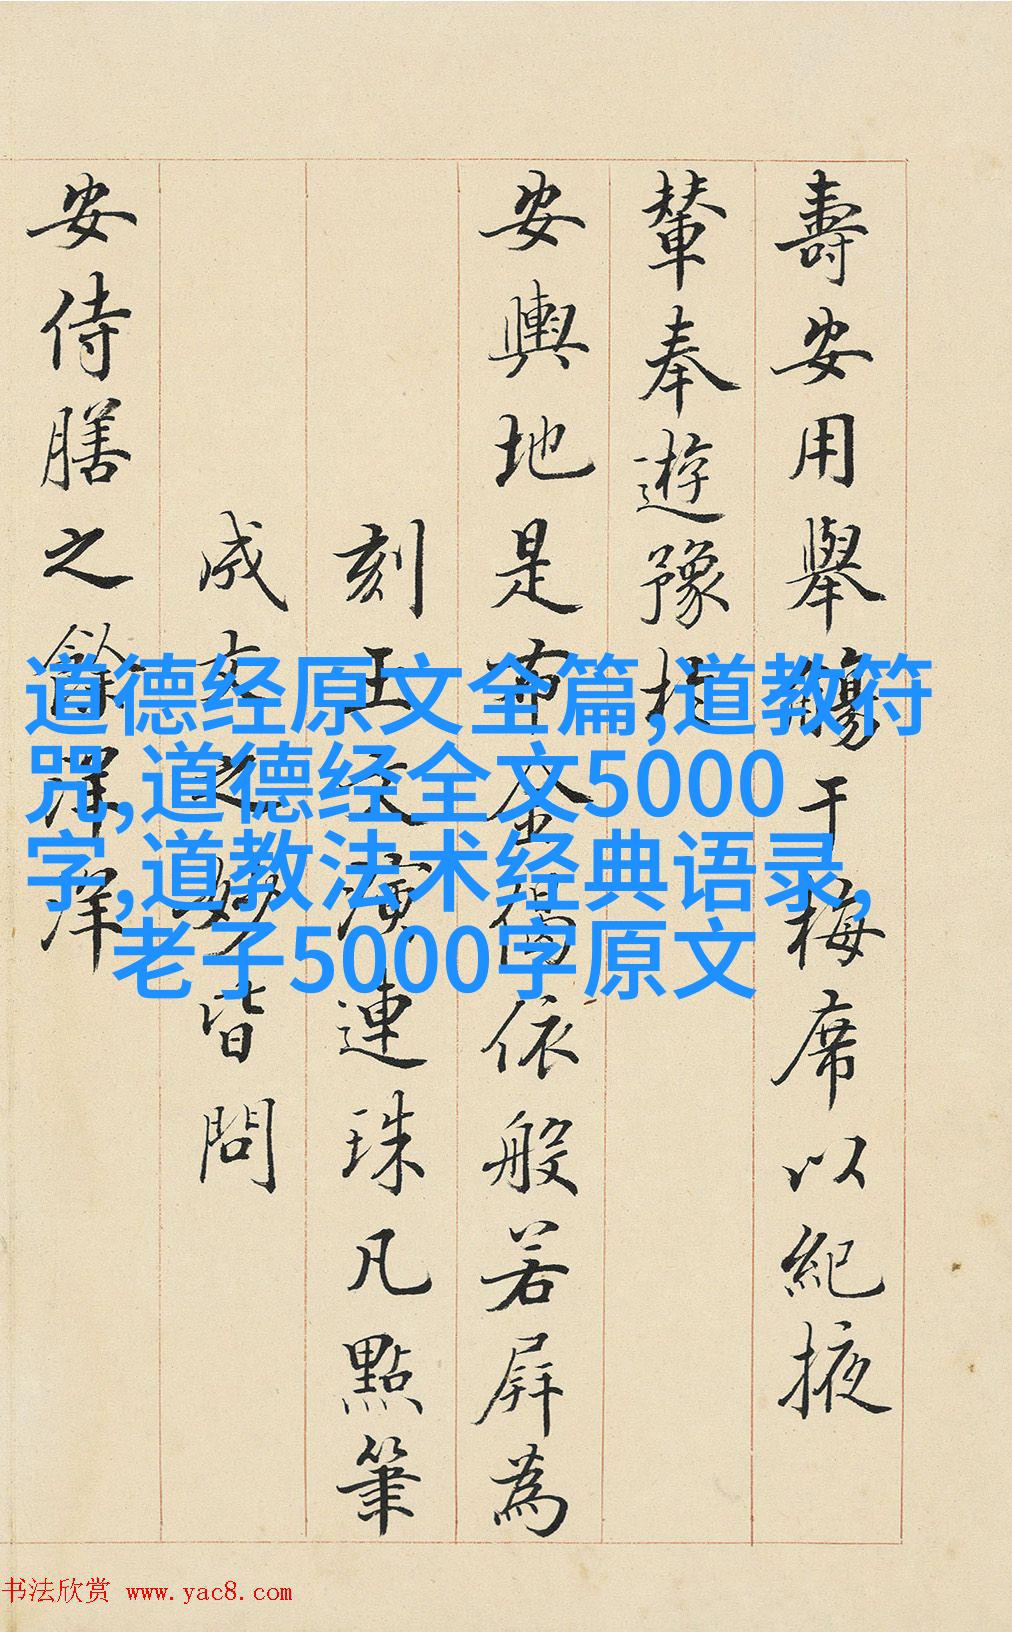 壽安用舉觴于梅席以紀掖
輦奉遊豫
安輿地是布金偈依般若屏為
刻玉文演連珠凡點筆
成文之妙皆問
安侍膳之餘洋洋
道德经原文全篇,道教符
咒,道德经全文5000
字,道教法术经典语录,
老子5000字原文
书法欣赏 www.yac8.com